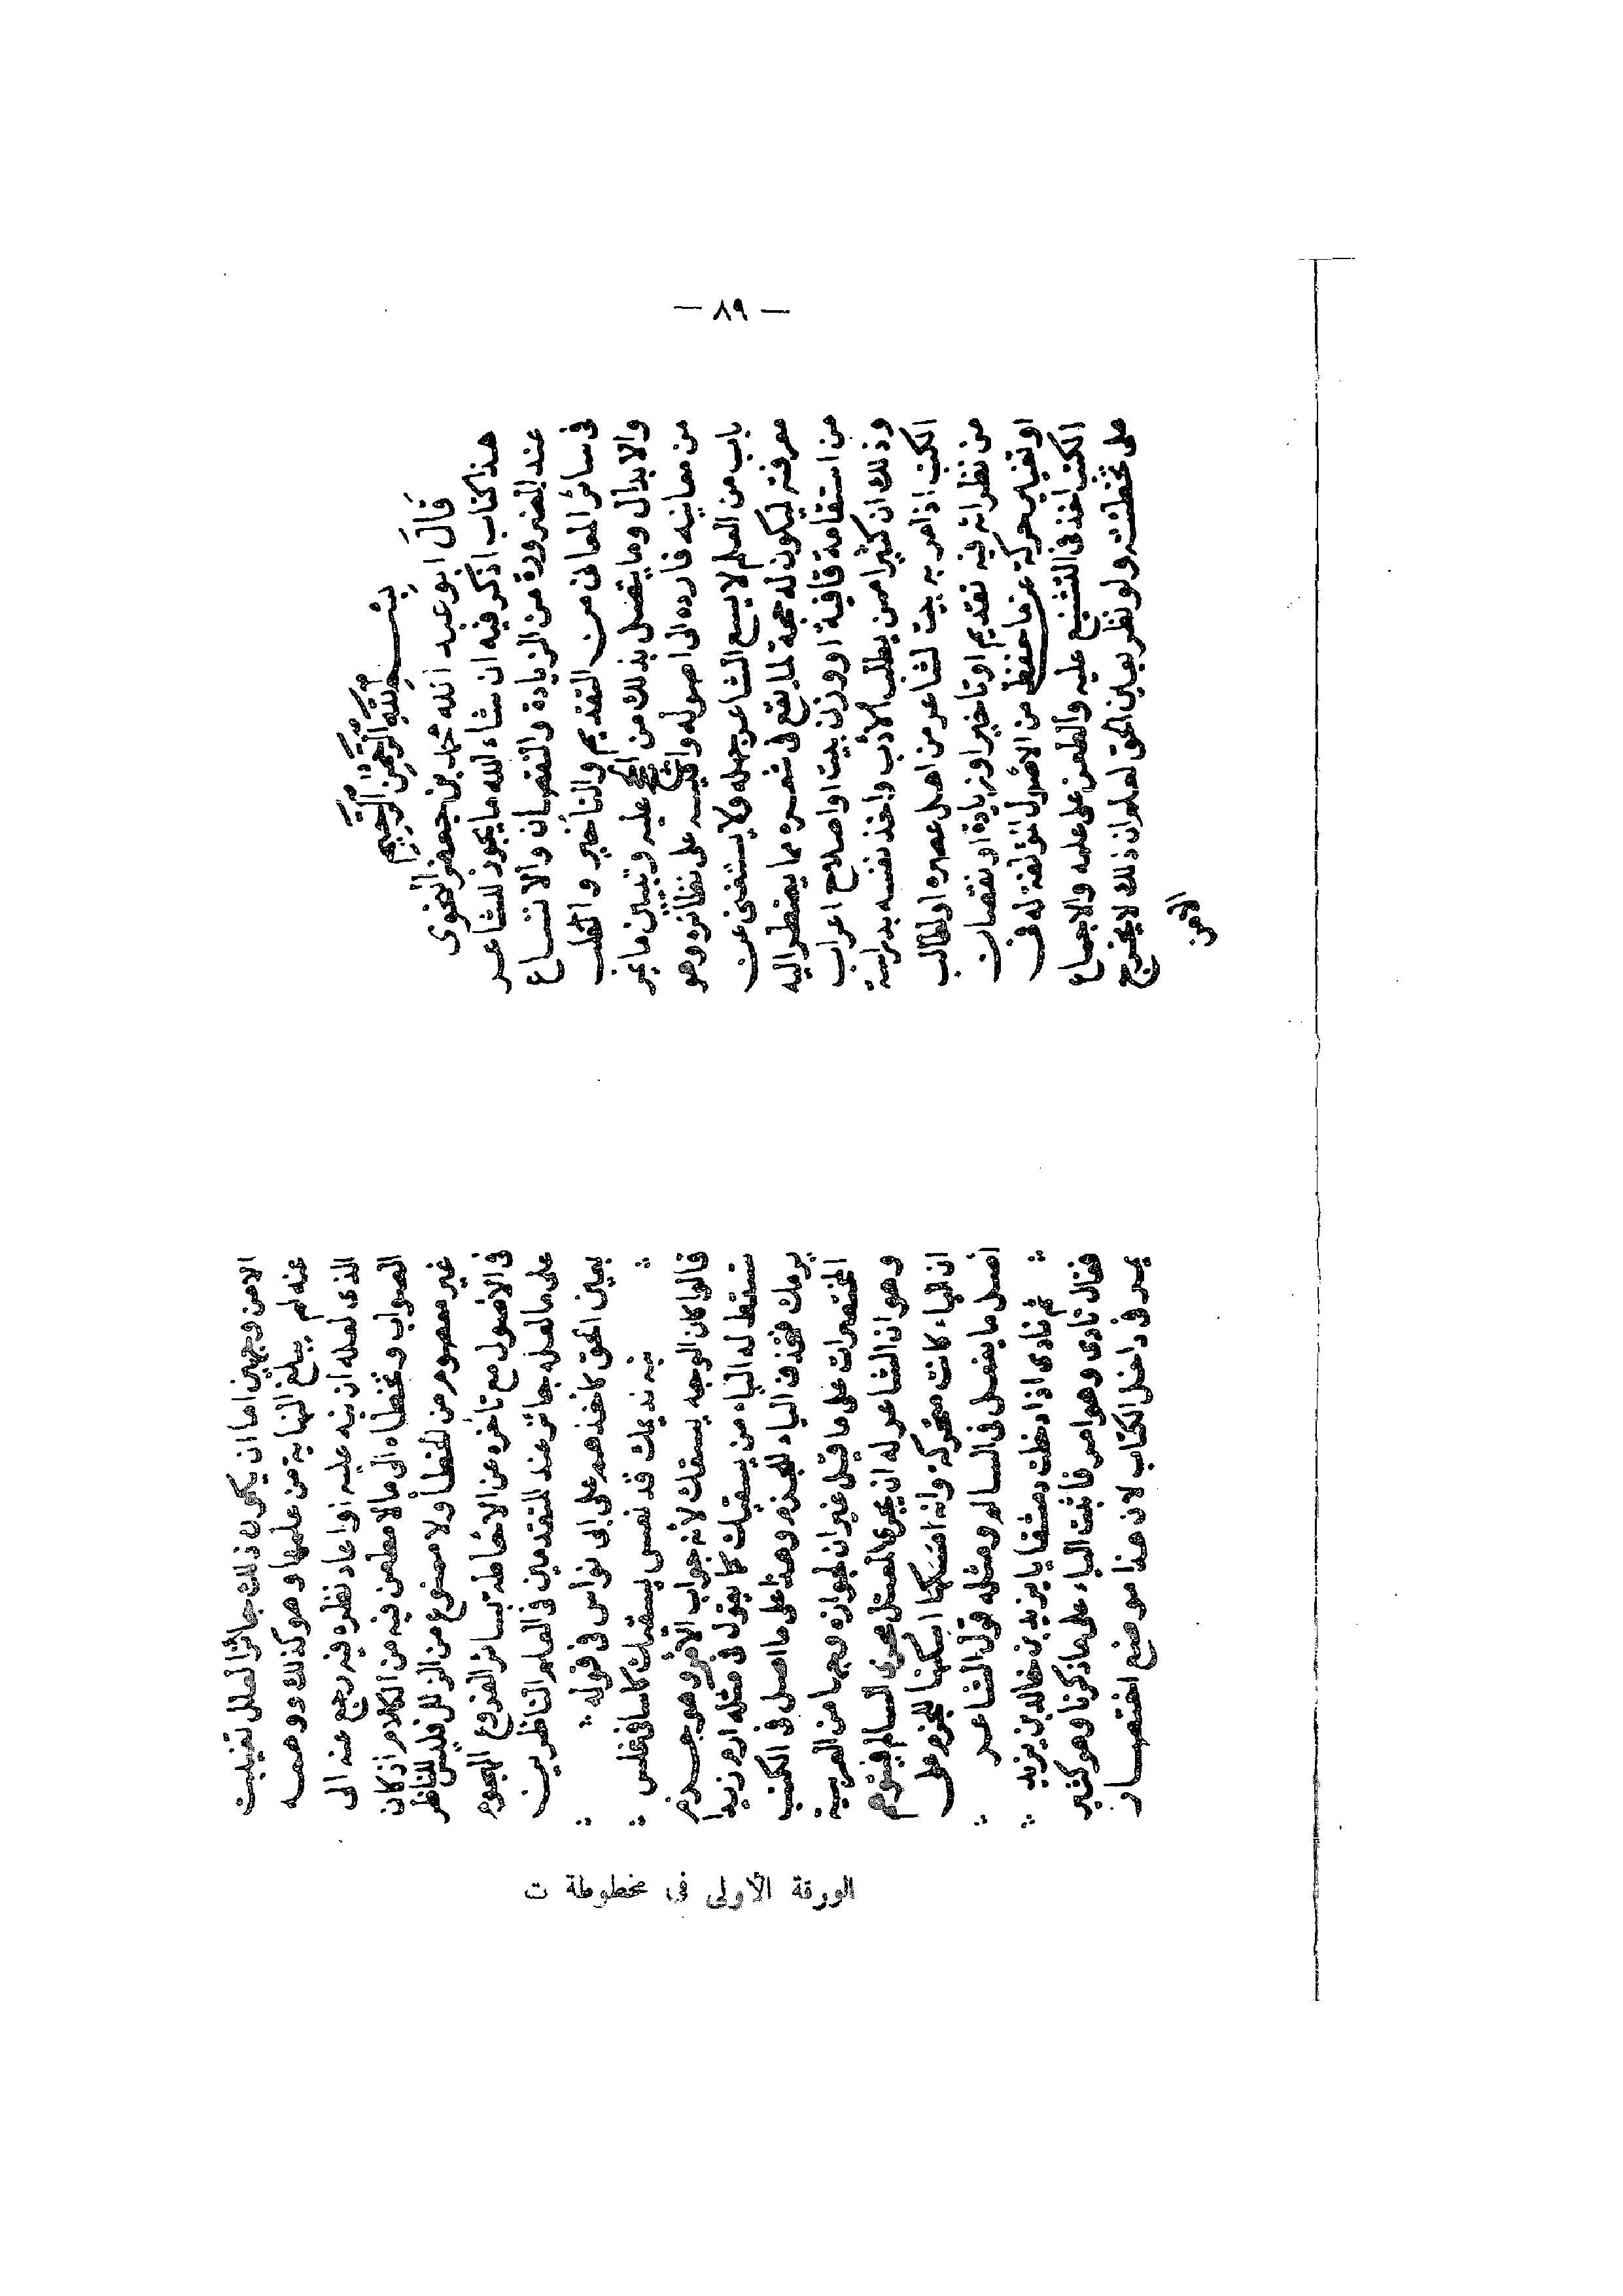 — ٨٩ —
بسم الله الرحمن الرحيم
قال ابو عبد الله محمد بن جعفر النحوى
هذا كتاب اذكر فيه ان شاء الله ما يجوز للشاعر
عند الضرورة من الزيادة والنقصان والاتساع
فى سائر المعانى من التقديم والتأخير والقلب
والابدال وما يتصل بذلك من الحجج عليه وتبيين ما يمر
من معانيه فارده الى اصوله واقيسه على نظائره وهو
باب من العلم لا يسع الشاعر جهله ولا يستغنى عن
معرفته ليكون له حجة لما يقع فى شعره مما يضطر اليه
من استقامة قافية او وزن بيت او اصلاح اعراب
وذلك ان كثيرا ممن يطلب الأدب واخذ نفسه بدراسة
الكتب اذا مر به بيت لشاعر من اهل عصره او لطالب
من نظرائه فيه تقديم او تاخير او زيادة او نقصان
او تغيير حركة عن ما حفظ من الأصول المؤلفة له فى
الكتب اخذ فى التشنيع عليه والطعن على علمه والاجماع
على تخطئته ولو نظر بعين الحق لعلم ان ذلك لا يخرج
الا من
الا من وجهين اما ان يكون ذلك جائزا لعلل تغيبت
عنه لم يبلغ النهاية من علمها وهو كذلك ووهمه
الذى لعله ان نبه عليه او اعاد نظره فيه رجع عنه الى
الصواب وتخطاه الى ما لا مطعن فيه من الكلام اذ كان
غير معصوم من الخطأ ولا ممنوع من الزلل فليس للناظر
فى الأصول مع تأخره عن الاحاطة بسائر الفروع الهجوم
على ما لعله جائز عند المتقدمين فى العلم الناظرين
بعين الحق كاخذهم على ابى نواس فى قوله
نبه نديمك قد نعس يسقيك كاسا فى غلس
قالوا كان الوجه يسقك لأنه جواب الأمر وهو جزم
تسقط له الياء من يسقيك كما يقول فى مثله ارم زيدا
يرمك فتحذف الياء للجزم وهذا على ما اصل فى الكتب
المختصرات على ما قيل غير ان لجوازه وجها من العربية
وهو ان الشاعر له ان يجرى المعتل مجرى السالم فيتوهم
ان الياء كانت متحركة وانه اسكنها اسكنها للجزم على
اصل ما يفعل فى السالم ومثله قول الشاعر
ثم نادى اذا دخلت دمشقا يا يزيد بن خالد بن يزيد
فقال نادى وهو امر فاثبت الياء على ما ذكرنا وهو كثير
يمر فى داخل الكتاب لان هذا موضع اختصار
الورقة الأولى فى مخطوطة ت